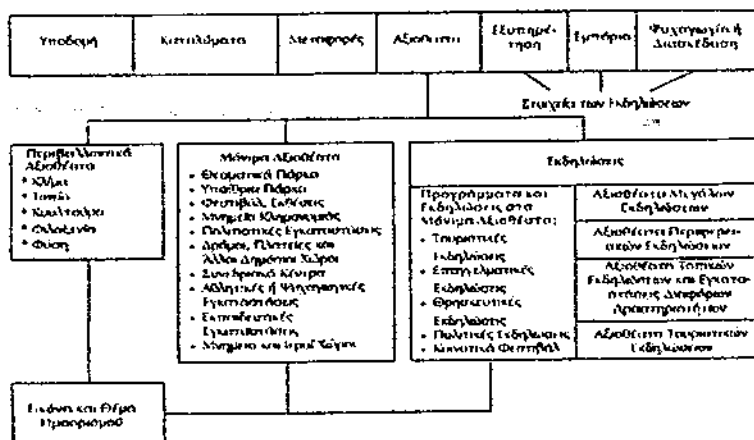 Υποδομή
Καταλύματα
Μεταφορές
Αξιοθέατα
Εξυπηρέ-
τηση
Εμπόριο
Ψυχαγωγία ή
Διασκέδαση
Στοιχεία των Εκδηλώσεων
Περιβαλλοντικά
Αξιοθέατα
* Κλίμα
* Τοπίο
* Κουλτούρα
* Φιλοξενία
* Φύση
Μόνιμα Αξιοθέατα
• Θεματικά Πάρκα
• Υπαίθρια Πάρκα
• Φεστιβάλ, Εκθέσεις
• Μνημεία Κληρονομιάς
• Πολιτιστικές Εγκαταστάσεις
• Δρόμοι, Πλατείες και
Άλλοι Δημόσιοι Χώροι
• Συνεδριακά Κέντρα
• Αθλητικές ή Ψυχαγωγικές
Εγκαταστάσεις
• Εκπαιδευτικές
Εγκαταστάσεις
• Μνημεία και Ιεροί Χώροι
Εκδηλώσεις
Προγράμματα και
Εκδηλώσεις στα
Μόνιμα Αξιοθέατα:
• Τουριστικές
Εκδηλώσεις
• Επαγγελματικές
Εκδηλώσεις
• Θρησκευτικές
Εκδηλώσεις
• Πολιτικές Εκδηλώσεις
• Κοινοτικά Φεστιβάλ
Αξιοθέατα Μεγάλων
Εκδηλώσεων
Αξιοθέατα Περιφερει-
ακών Εκδηλώσεων
Αξιοθέατα Τοπικών
Εκδηλώσεων και Εγκατα-
στάσεις Διαφόρων
Δραστηριοτήτων
Αξιοθέατα Τουριστικών
Εκδηλώσεων
Εικόνα και Θέμα
Προορισμού